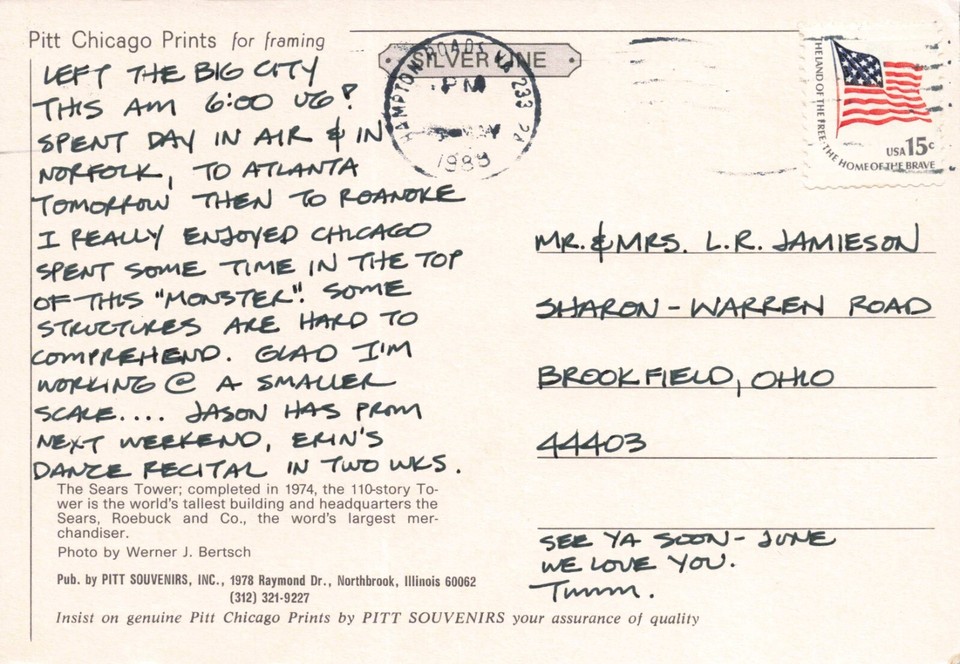 Pitt Chicago Prints for framing
LEFT THE BIG CITY
THIS AM 6:00 UG?
SPENT DAY IN AIR & IN
NORFOLK, TO ATLANTA
TOMORROW THEN TO ROANOKE
I REALLY ENJOYED CHICAGO
SPENT SOME TIME IN THE TOP
OF THIS "MONSTER". SOME
STRUCTURES ARE HARD TO
COMPREHEND. GLAD I'M
WORKING @ A SMALLER
SCALE.... JASON HAS PROM
NEXT WEEKEND, ERIN'S
DANCE RECITAL IN TWO WKS.
The Sears Tower; completed in 1974, the 110-story To-
wer is the world's tallest building and headquarters the
Sears, Roebuck and Co., the word's largest mer-
chandiser.
Photo by Werner J. Bertsch
Pub. by PITT SOUVENIRS, INC., 1978 Raymond Dr., Northbrook, Illinois 60062
(312) 321-9227
Insist on genuine Pitt Chicago Prints by PITT SOUVENIRS your assurance of quality
SILVER LINE
HAMPTON ROADS VA 233
PM
THE LAND OF THE FREE·THE HOME OF THE BRAVE
USA 15c
MR. & MRS. L.R. JAMIESON
SHARON-WARREN ROAD
BROOKFIELD, OHIO
44403
SEE YA SOON - JUNE
WE LOVE YOU.